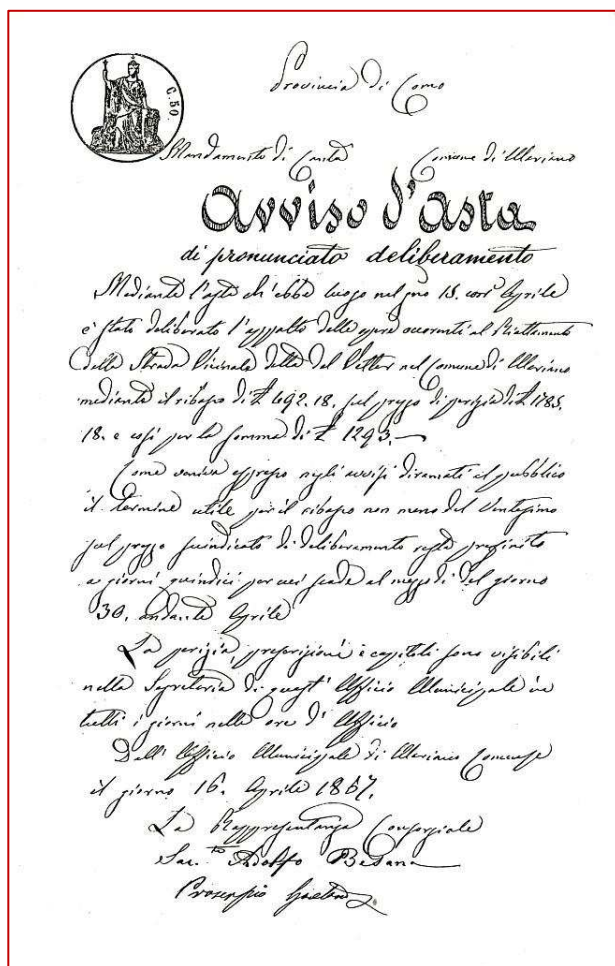 C. 50.
Provincia di Como
Mandamento di Cantù Comune di Mariano
Avviso d'asta
di pronunciato deliberamento
Mediante l'asta ch'ebbe luogo nel gno 15. corr.e Aprile
è stato deliberato l'appalto delle opere occorenti al Riattamento
della Strada Vicinale detta del Vetter nel Comune di Mariano
mediante il ribasso di £ 492.18. sul prezzo di perizia di £ 1785.
18. e così per la somma di £ 1293.—
Come veniva espresso negli avvisi diramati al pubblico
il termine utile per il ribasso non meno del Ventesimo
sul prezzo suindicato di deliberamento resta prefinito
a giorni quindici per cui scade al mezzodì del giorno
30. andante Aprile
La perizia, prescrizioni e capitoli sono visibili
nella Segreteria di quest' Ufficio Municipale in
tutti i giorni nelle ore d' Ufficio
Dall' Ufficio Municipale di Mariano Comense
il giorno 16. Aprile 1867.
La Rappresentanza Consorziale
Sac.te Adolfo Besana
Proserpio Gaetano